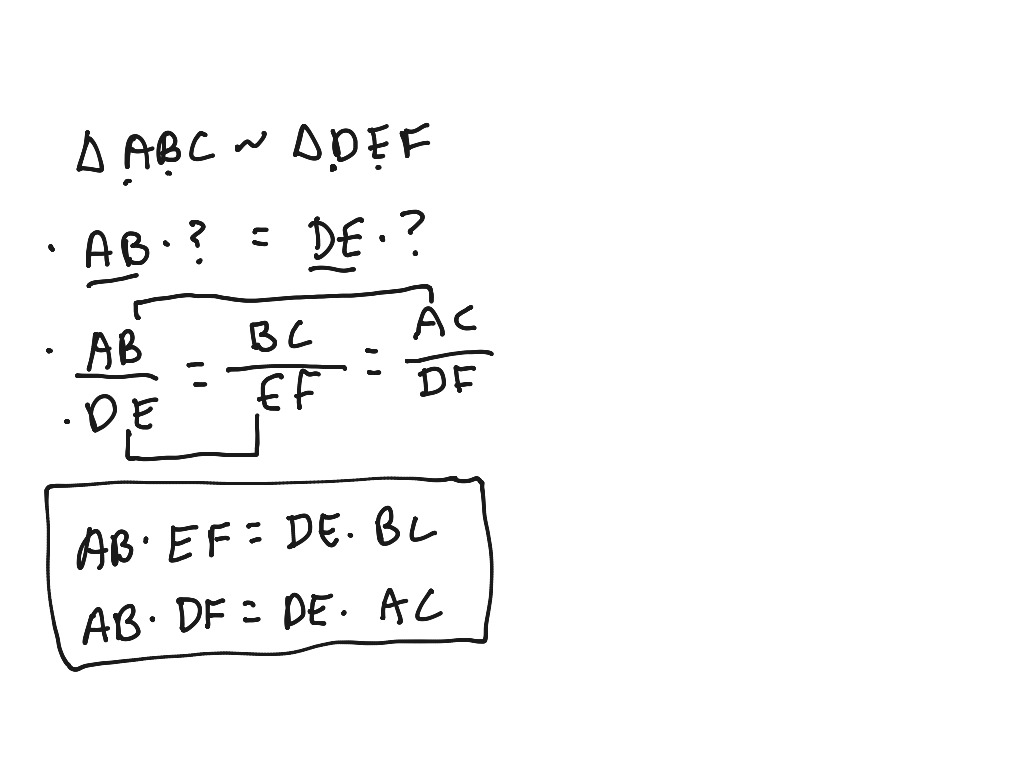 Δ ABC ~ Δ DEF
· AB · ? = DE · ?
· AB/DE = BC/EF = AC/DF
AB · EF = DE · BC
AB · DF = DE · AC